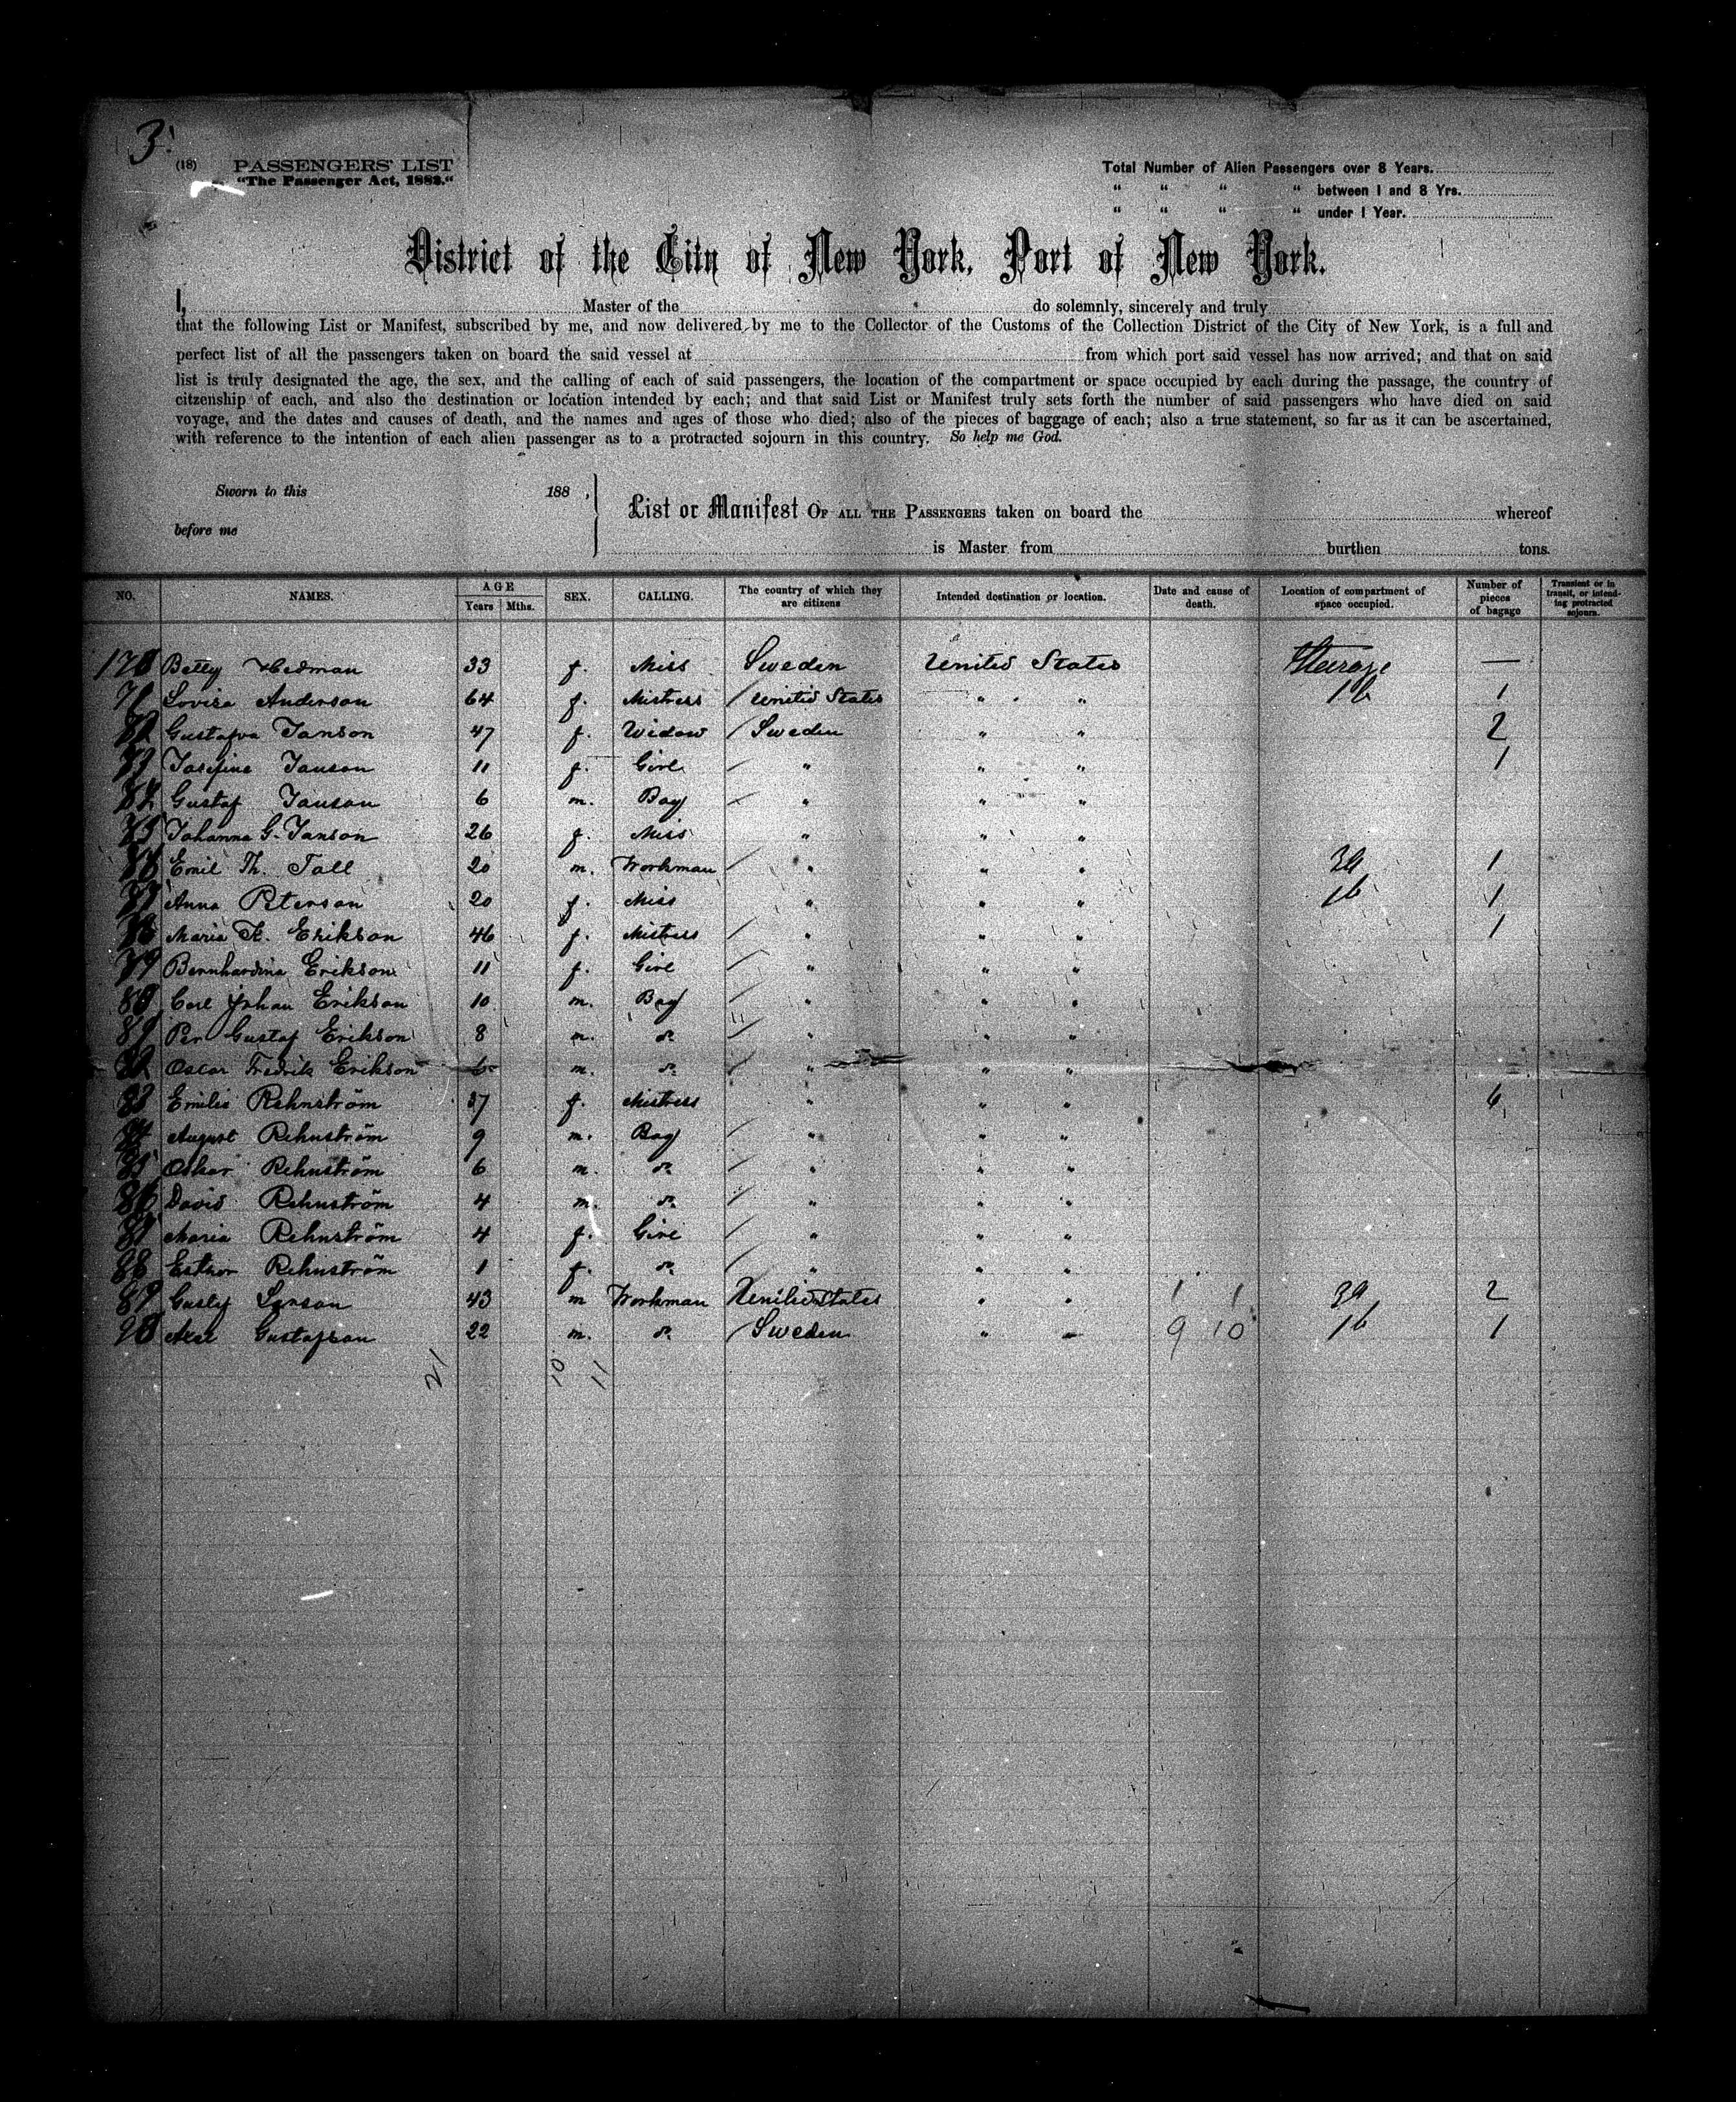 3.
(18) PASSENGERS' LIST
"The Passenger Act, 1882."
Total Number of Alien Passengers over 8 Years.
" " " " between 1 and 8 Yrs.
" " " " under 1 Year.
District of the City of New York, Port of New York.
I, Master of the do solemnly, sincerely and truly
that the following List or Manifest, subscribed by me, and now delivered by me to the Collector of the Customs of the Collection District of the City of New York, is a full and
perfect list of all the passengers taken on board the said vessel at from which port said vessel has now arrived; and that on said
list is truly designated the age, the sex, and the calling of each of said passengers, the location of the compartment or space occupied by each during the passage, the country of
citzenship of each, and also the destination or location intended by each; and that said List or Manifest truly sets forth the number of said passengers who have died on said
voyage, and the dates and causes of death, and the names and ages of those who died; also of the pieces of baggage of each; also a true statement, so far as it can be ascertained,
with reference to the intention of each alien passenger as to a protracted sojourn in this country. So help me God.
Sworn to this 188 ,
before me
List or Manifest OF ALL THE PASSENGERS taken on board the whereof
is Master from burthen tons.
NO. NAMES. AGE Years Mths. SEX. CALLING. The country of which they are citizens Intended destination or location. Date and cause of death. Location of compartment of space occupied. Number of pieces of bagage Transient or in transit, or intending protracted sojourn.
Betty Hedman 33 f. Miss Sweden United States Steerage —
71 Lovisa Anderson 64 f. Mistress / United States " " 1b 1
Gustafva Janson 47 f. Widow / Sweden " " 2
Josefine Janson 11 f. Girl / " " " 1
Gustaf Janson 6 m. Boy / " " "
Johanna G. Janson 26 f. Miss " " "
Emil Th. Tall 20 m. Workman / " " " 3a 1
Anna Peterson 20 f. Miss " " " 1b 1
Maria K. Erikson 46 f. Mistress / " " " 1
79 Bernhardina Erikson 11 f. Girl / " " "
80 Carl Johan Erikson 10 m. Boy / " " "
81 Per Gustaf Erikson 8 m. do / " " "
82 Oscar Fredrik Erikson 6 m. do / " " "
83 Emilie Rehnström 37 f. Mistress " " " 6
84 August Rehnström 9 m. Boy / " " "
85 Oskar Rehnström 6 m. do / " " "
86 David Rehnström 4 m. do / " " "
87 Maria Rehnström 4 f. Girl / " " "
88 Esther Rehnström 1 f. do / " " "
89 Gustaf Larson 43 m Workman United States " " 1 1 3a 2
90 Axel Gustafson 22 m. do / Sweden " " 9 10 1b 1
21 10 11